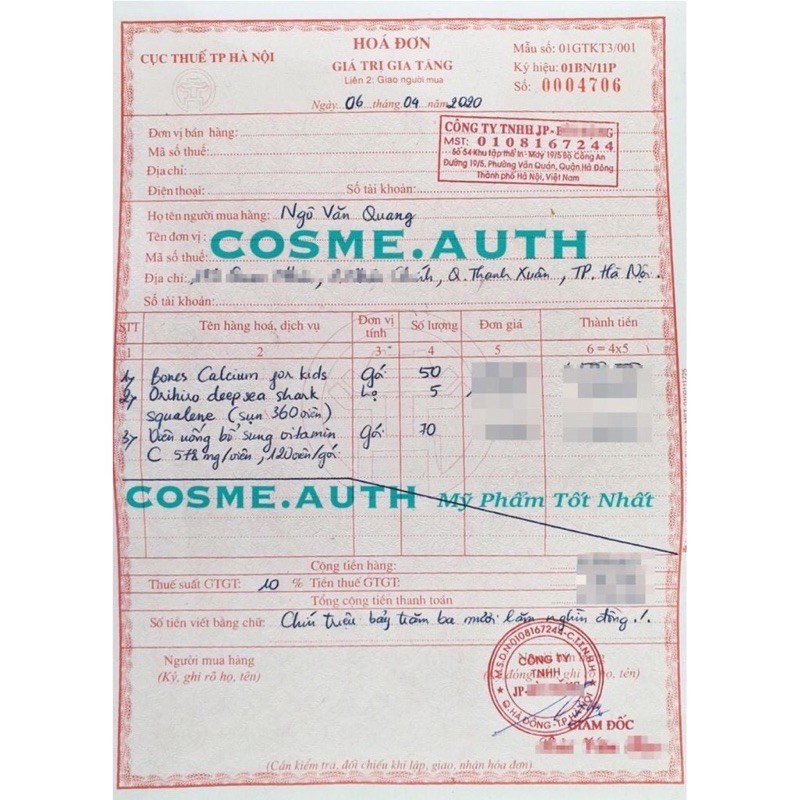 CỤC THUẾ TP HÀ NỘI
HOÁ ĐƠN
GIÁ TRỊ GIA TĂNG
Liên 2: Giao người mua
Mẫu số: 01GTKT3/001
Ký hiệu: 01BN/11P
Số: 0004706
Ngày 06 tháng 04 năm 2020
Đơn vị bán hàng:
Mã số thuế:
Địa chỉ:
Điện thoại: Số tài khoản:
CÔNG TY TNHH JP-
MST: 0108167244
Số 54 Khu tập thể In - Máy 19/5 Bộ Công An
Đường 19/5, Phường Văn Quán, Quận Hà Đông
Thành phố Hà Nội, Việt Nam
Họ tên người mua hàng: Ngô Văn Quang
Tên đơn vị:
COSME.AUTH
Mã số thuế:
Địa chỉ: Q. Thanh Xuân, TP. Hà Nội.
Số tài khoản:
STT Tên hàng hoá, dịch vụ Đơn vị tính Số lượng Đơn giá Thành tiền
1 2 3 4 5 6 = 4x5
1, Bones Calcium for kids gói 50
2, Orihiro deep sea shark lọ 5
squalene (sụn 360 viên)
3, Viên uống bổ sung vitamin gói 70
C 578 mg/viên, 120 viên/gói
COSME.AUTH Mỹ Phẩm Tốt Nhất
Cộng tiền hàng:
Thuế suất GTGT: 10 % Tiền thuế GTGT:
Tổng cộng tiền thanh toán
Số tiền viết bằng chữ: Chín triệu bảy trăm ba mươi lăm nghìn đồng ./.
Người mua hàng
(Ký, ghi rõ họ, tên)
M.S.D.N:0108167244-C.T.T.N.H.H
CÔNG TY
TNHH
JP-
Q. HÀ ĐÔNG - T.P HÀ NỘI
GIÁM ĐỐC
(Cần kiểm tra, đối chiếu khi lập, giao, nhận hóa đơn)